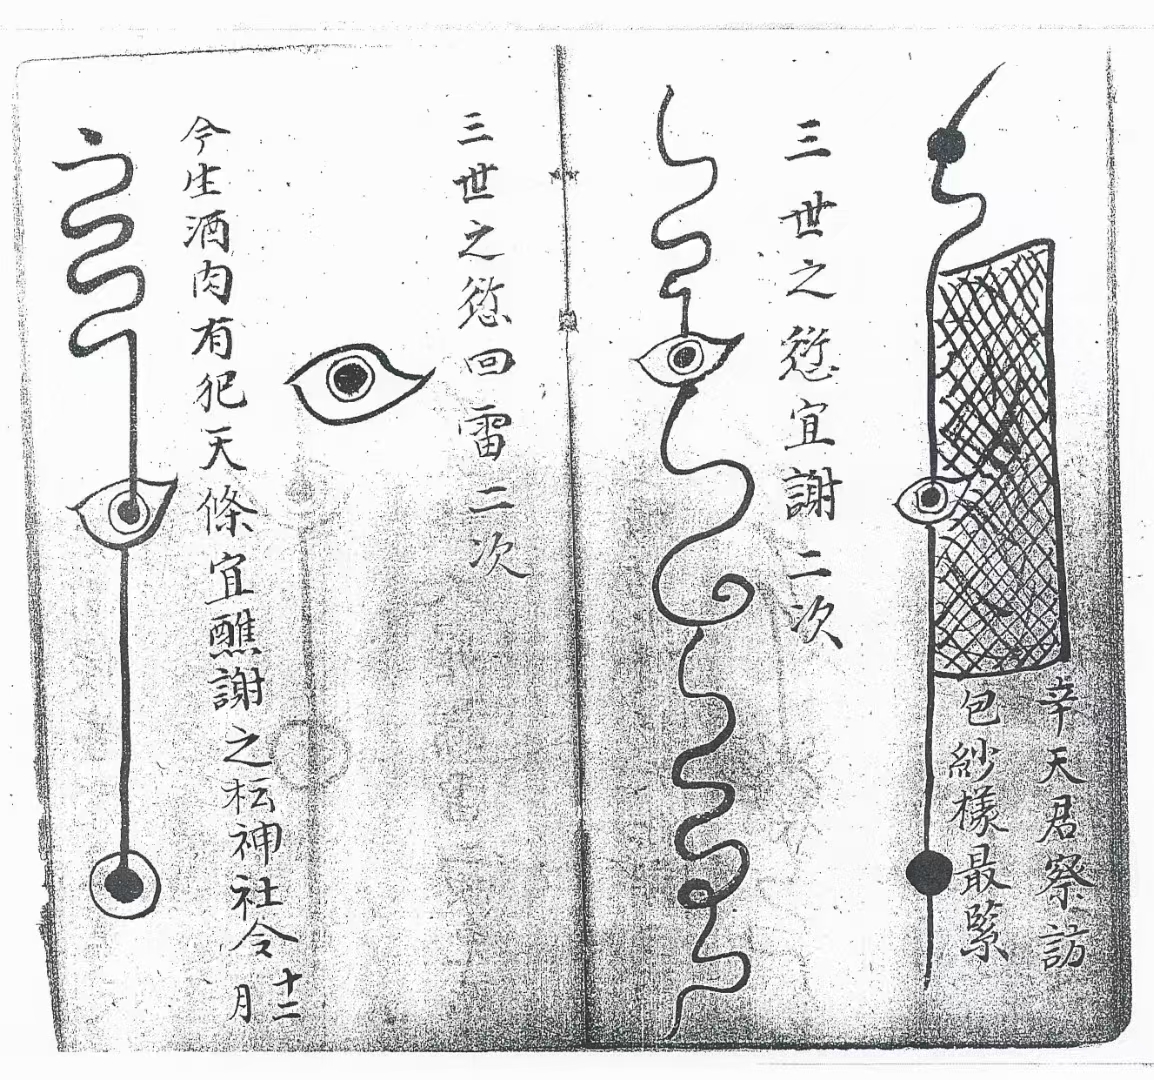 辛天君察訪
包紗樣最緊
三世之愆宜謝二次
三世之愆回雷二次
今生酒肉有犯天條宜醮謝之
神社令
十二
月